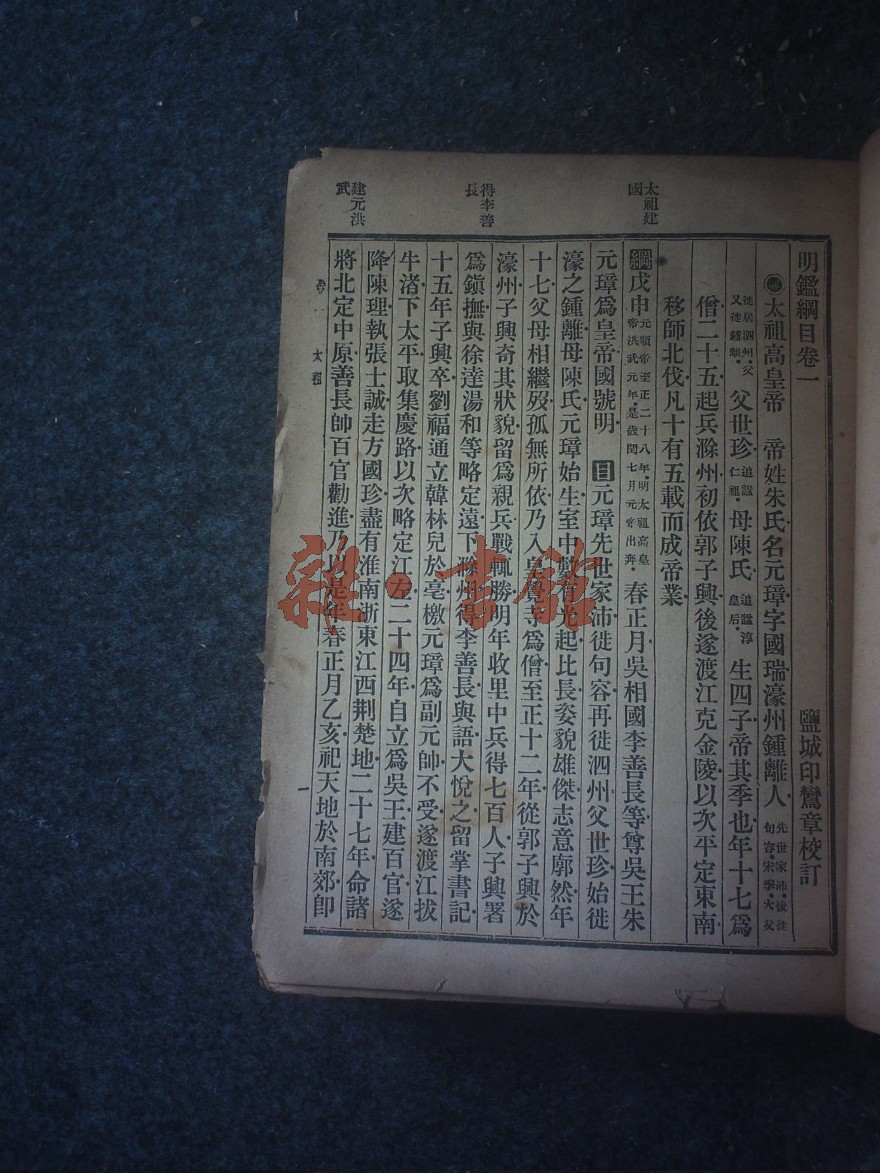 太祖建國
得李善長
建元洪武
明鑑綱目卷一 鹽城印鸞章校訂
太祖高皇帝 帝姓朱氏名元璋字國瑞濠州鍾離人先世家沛後徙句容宋季大父
徙居泗州父又徙鍾離父世珍追諡仁祖母陳氏追諡淳皇后生四子帝其季也年十七爲
僧二十五起兵滁州初依郭子興後遂渡江克金陵以次平定東南
移師北伐凡十有五載而成帝業
綱戊申元順帝至正二十八年明太祖高皇帝洪武元年是歲閏七月元帝出奔春正月吳相國李善長等尊吳王朱
元璋爲皇帝國號明 目元璋先世家沛徙句容再徙泗州父世珍始徙
濠之鍾離母陳氏元璋始生室中數有光起比長姿貌雄傑志意廓然年
十七父母相繼歿孤無所依乃入皇覺寺爲僧至正十二年從郭子興於
濠州子興奇其狀貌留爲親兵戰輒勝明年收里中兵得七百人子興署
爲鎭撫與徐達湯和等略定遠下滁州得李善長與語大悅之留掌書記
十五年子興卒劉福通立韓林兒於亳檄元璋爲副元帥不受遂渡江拔
牛渚下太平取集慶路以次略定江左二十四年自立爲吳王建百官遂
降陳理執張士誠走方國珍盡有淮南浙東江西荆楚地二十七年命諸
將北定中原善長帥百官勸進乃以是年春正月乙亥祀天地於南郊卽
卷一 太祖
雜·書館